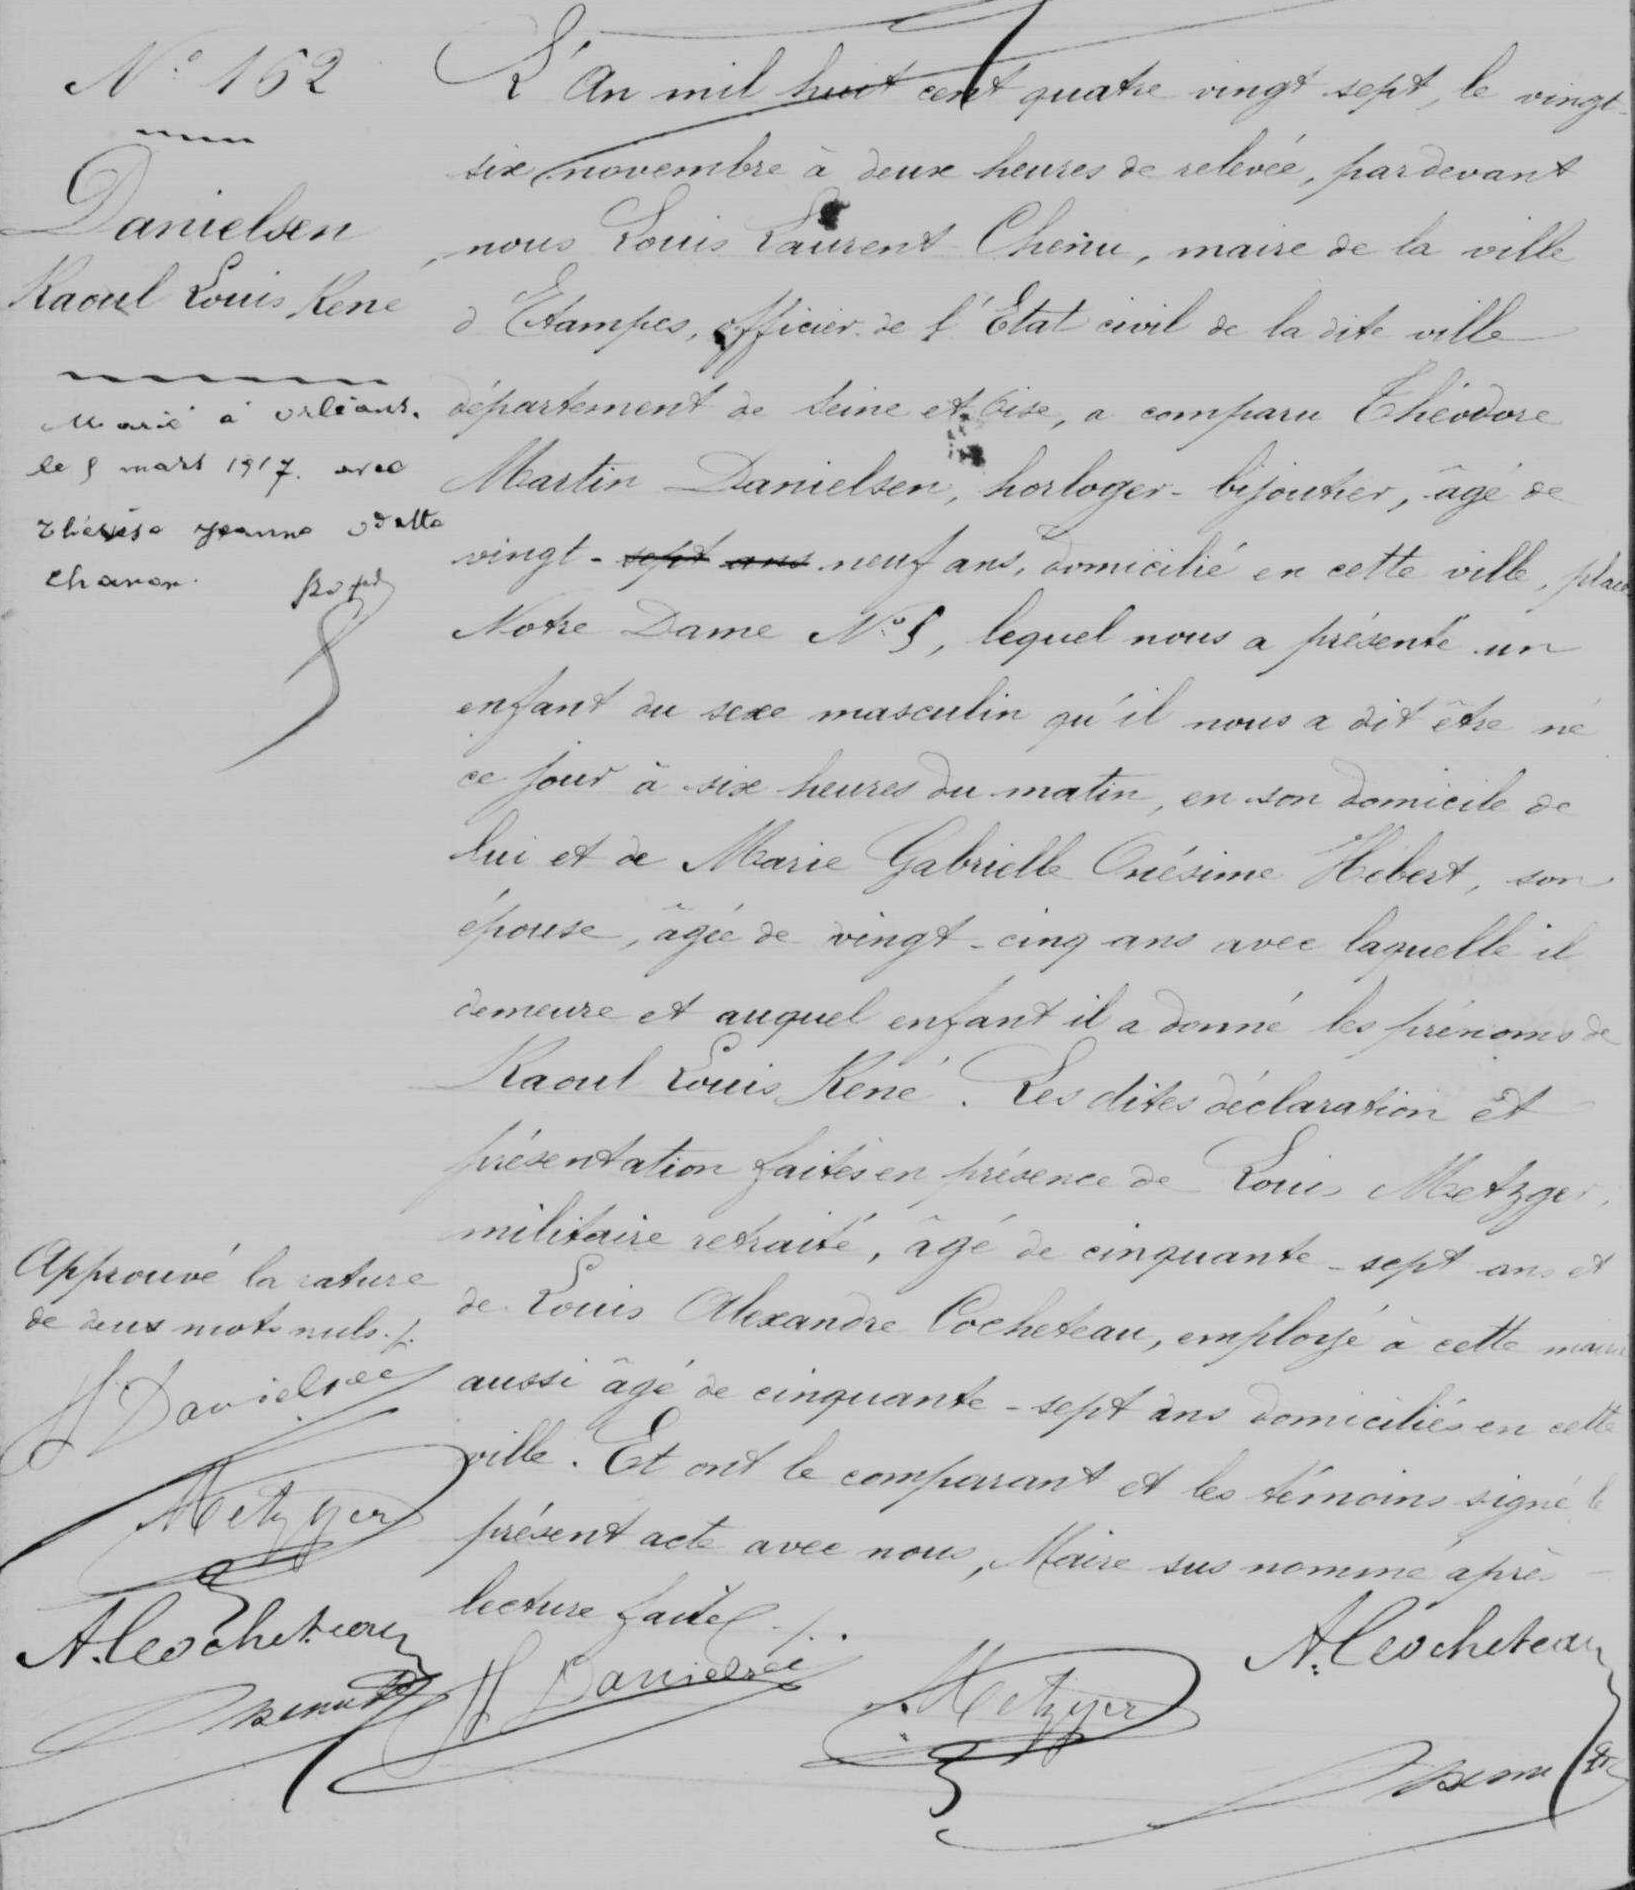 N° 162
Danielsen
Raoul Louis René
Marié à Orléans
le 5 mars 1917. avec
Thérèse Jeanne Odette
L'An mil huit cent quatre vingt sept, le vingt-
six novembre à deux heures de relevée, pardevant
nous Louis Laurent Chenu, maire de la ville
d'Etampes, officier de l'Etat civil de la dite ville
département de Seine et Oise, a comparu Théodore
Martin Danielsen, horloger-bijoutier, âgé de
vingt-sept ans neuf ans, domicilié en cette ville, place
Notre Dame N° 5, lequel nous a présenté un
enfant du sexe masculin qu'il nous a dit être né
ce jour à six heures du matin, en son domicile de
lui et de Marie Gabrielle Onésime Hébert, son
épouse, âgée de vingt-cinq ans avec laquelle il
demeure et auquel enfant il a donné les prénoms de
Raoul Louis René. Les dites déclaration et
présentation faites en présence de Louis Metzger,
militaire retraité, âgé de cinquante-sept ans et
de Louis Alexandre Cocheteau, employé à cette mairie
aussi âgé de cinquante-sept ans domiciliés en cette
ville. Et ont le comparant et les témoins signé le
présent acte avec nous, Maire sus nommé après
lecture faite ./.
Approuvé la rature
de deux mots nuls ./.
Danielsen
Metzger
A. Cocheteau
Chenu
Danielsen
Metzger
A. Cocheteau
Chenu